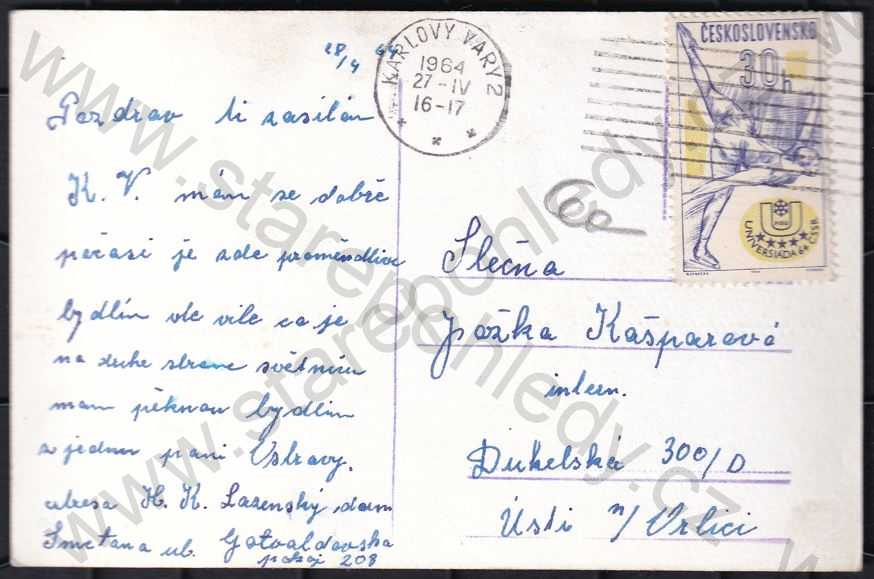 28/4 64
Pozdrav ti zasílám
K. V. mám se dobře
počasí je zde proměndlive
bydlím ve vile co je
na druhe strane světnicu
mam pěknou bydlim
z jednu pani Ostravy.
adresa H. K. Lazenský dom
Smetana ub. Gotvaldovska
pokoj 208
KARLOVY VARY 2
1964
27-IV
16-17
ČESKOSLOVENSKO
30h
UNIVERSIADA 64 ČSSR
60
Slečna
Jožka Kašparová
intern.
Dukelská 300/D
Ústi n/Orlici
www.starepohledy.cz
www.starepohledy.cz